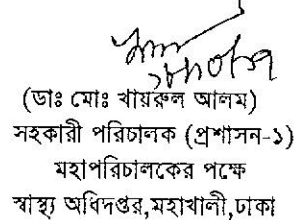 (ডাঃ মোঃ খায়রুল আলম)
সহকারী পরিচালক (প্রশাসন-১)
মহাপরিচালকের পক্ষে
স্বাস্থ্য অধিদপ্তর,মহাখালী,ঢাকা